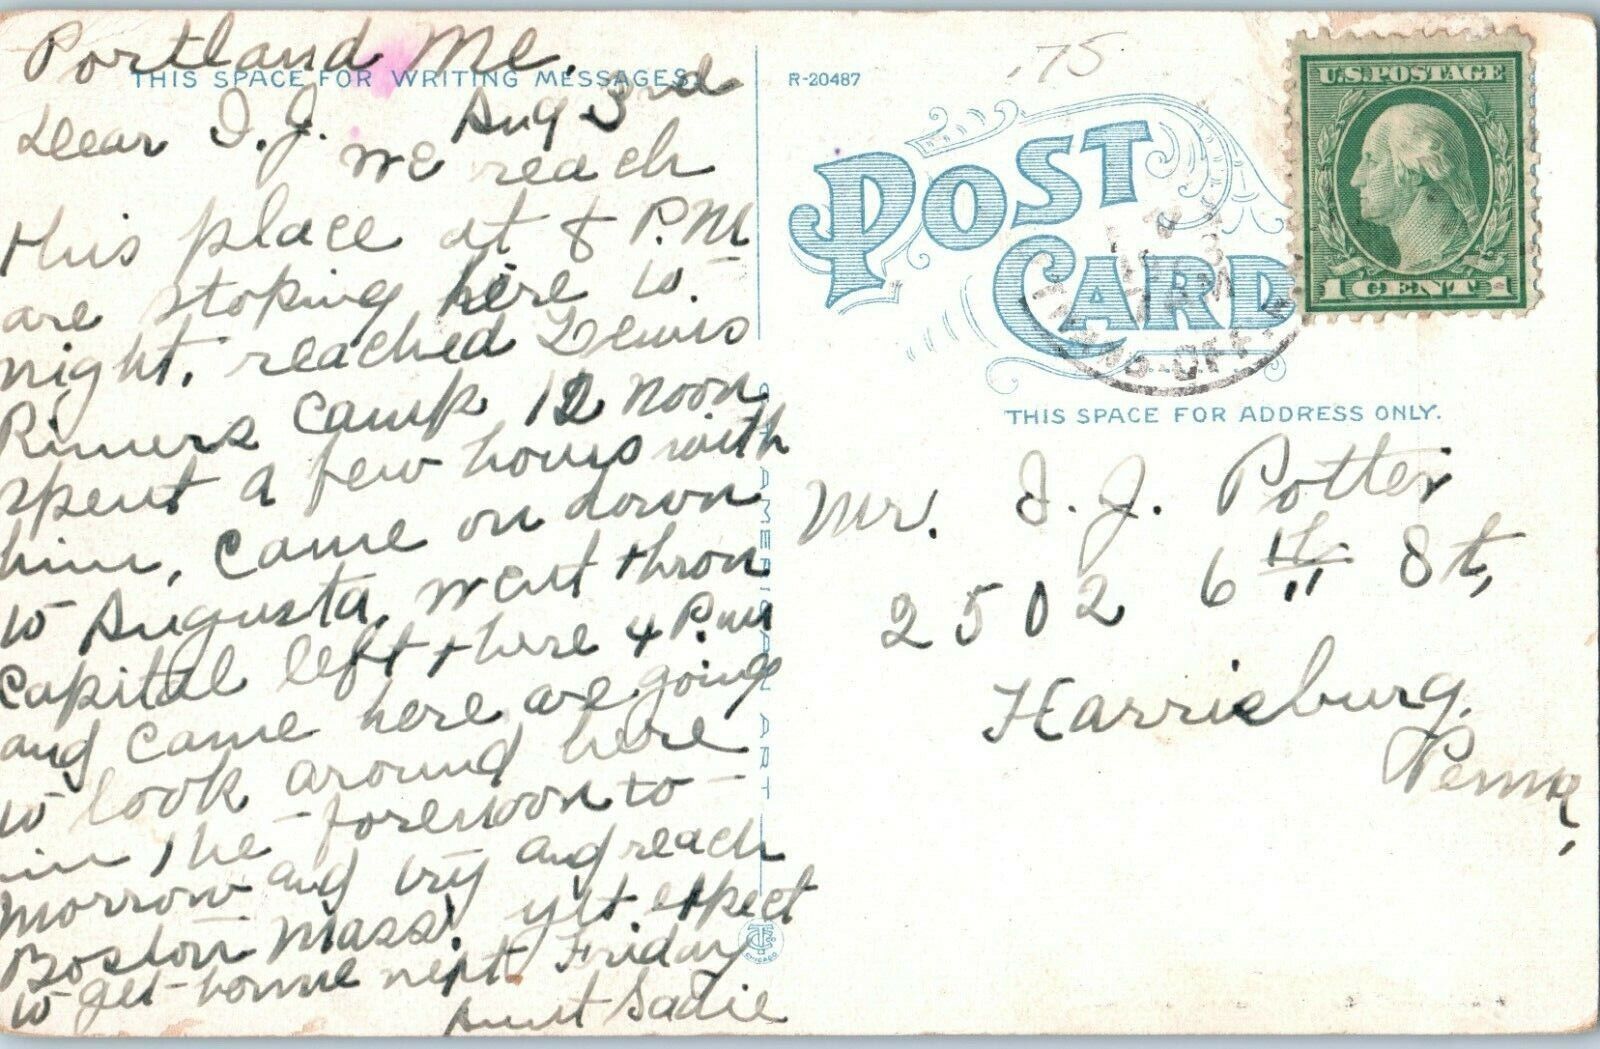 Portland Me.
THIS SPACE FOR WRITING MESSAGES.
Aug 3rd
Dear I. J.
We reach
this place at 8 P.M
are stoping here to
night. reached Lewis
Rimers Camp 12 noon
spent a few hours with
him, came on down
to Augusta, went throu
Capital left there 4 P.M
and came here are going
to look around here
in the forenoon to-
morrow and try and reach
Boston Mass. yet expect
to get home next Friday
Aunt Sadie
C.T. AMERICAN ART
CHICAGO
R-20487
.75
POST CARD
U.S. POSTAGE
1 CENT 1
THIS SPACE FOR ADDRESS ONLY.
Mr. I. J. Potter
2502 6th St,
Harrisburg,
Penna,